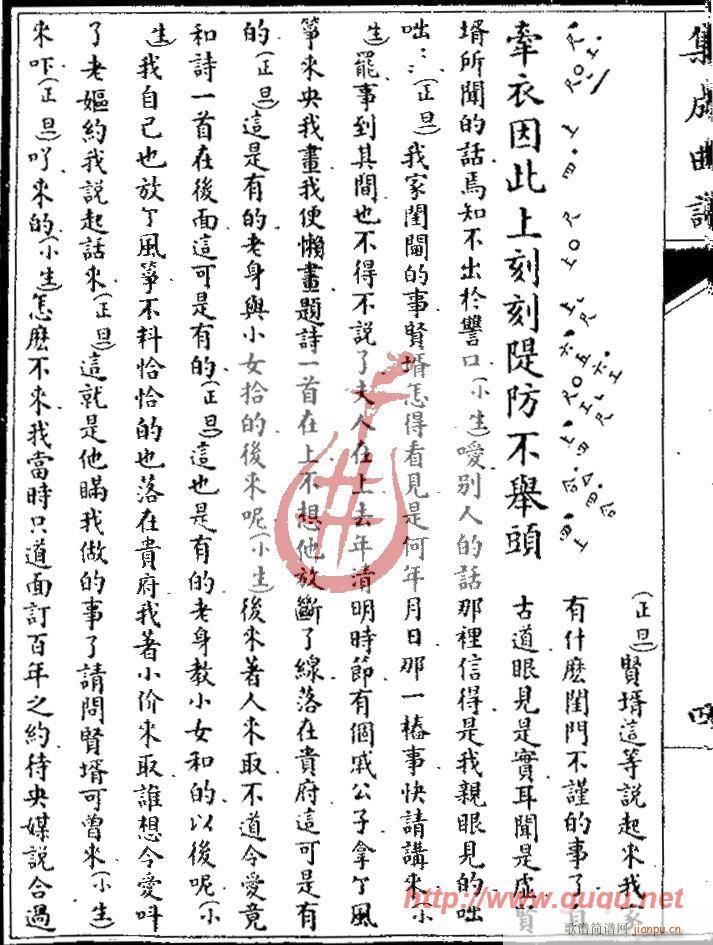 集成曲譜
四
牽衣因此上刻刻隄防不舉頭
(正旦)賢壻這等說起來我家
有什麽閨門不謹的事了
古道眼見是實耳聞是虛賢
壻所聞的話焉知不出於讐口(小生)噯別人的話那裡信得是我親眼見的咄
咄咄(正旦)我家閨閫的事賢壻怎得看見是何年月日那一樁事快請講來(小
生)罷事到其間也不得不說了夫人在上去年清明時節有個戚公子拿了風
箏來央我畫我便懶畫題詩一首在上不想他放斷了線落在貴府這可是有
的(正旦)這是有的老身與小女拾的後來呢(小生)後來著人來取不道令愛竟
和詩一首在後面這可是有的(正旦)這也是有的老身教小女和的以後呢(小
生)我自己也放了風箏不料恰恰的也落在貴府我著小价來取誰想令愛叫
了老嫗約我說起話來(正旦)這就是他瞞我做的事了請問賢壻可曾來(小生)
來吓(正旦)吖來的(小生)怎麽不來我當時只道面訂百年之約待央媒說合過
http://www.ququ.net
歌谱简谱网
jianpu.cn